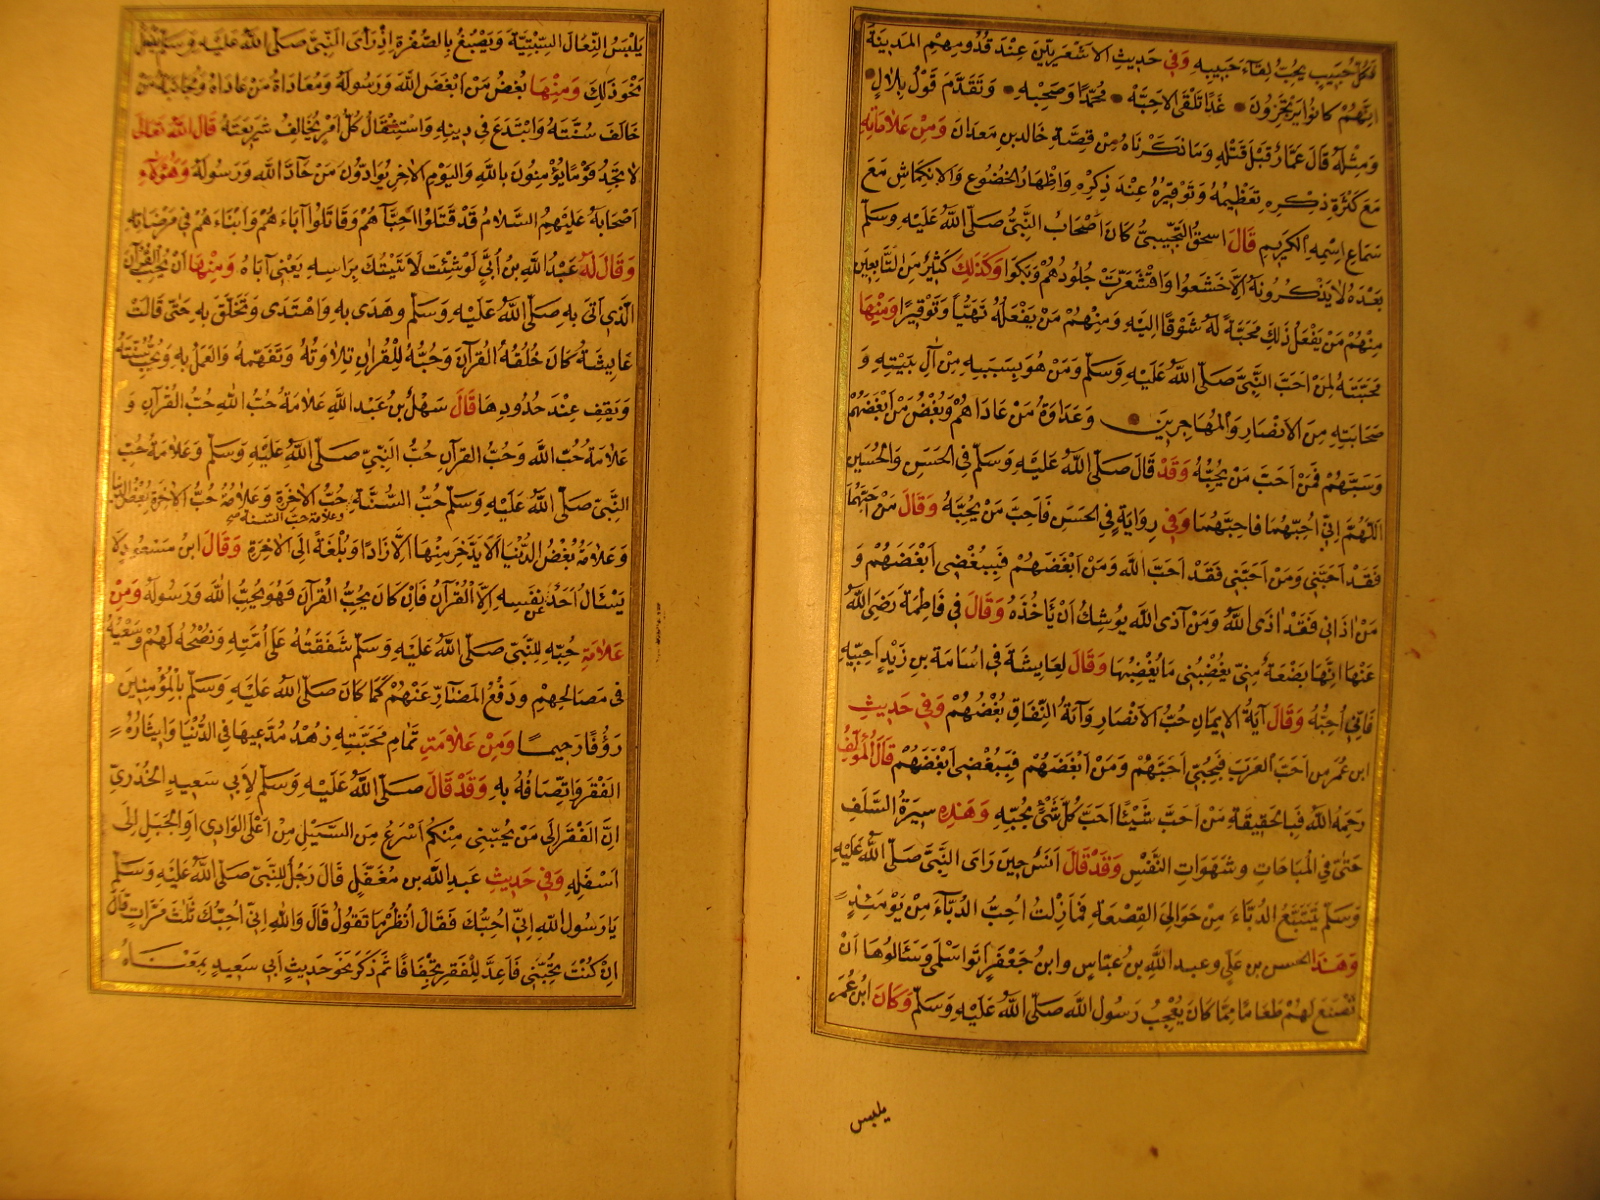 فَكُلُّ حَبِيبٍ يُحِبُّ لِقَاءَ حَبِيبِهِ وَفِي حَدِيثِ الْأَشْعَرِيِّينَ عِنْدَ قُدُومِهِمِ الْمَدِينَةَ
أَنَّهُمْ كَانُوا يَرْتَجِزُونَ غَدًا نَلْقَى الْأَحِبَّهْ مُحَمَّدًا وَصَحْبِهِ وَتَقَدَّمَ قَوْلُ بِلَالٍ
وَمِثْلُهُ قَالَ عَمَّارٌ قَبْلَ قَتْلِهِ وَمَا ذَكَرْنَاهُ مِنْ قِصَّةِ خَالِدِ بْنِ مَعْدَانَ وَمِنْ عَلَامَاتِهِ
مَعَ كَثْرَةِ ذِكْرِهِ تَعْظِيمُهُ وَتَوْقِيرُهُ عِنْدَ ذِكْرِهِ وَإِظْهَارُ الْخُضُوعِ وَالِانْكِمَاشِ مَعَ
سَمَاعِ اسْمِهِ الْكَرِيمِ قَالَ اسْحٰقُ التُّجِيبِيُّ كَانَ أَصْحَابُ النَّبِيِّ صَلَّى اللَّهُ عَلَيْهِ وَسَلَّمَ
بَعْدَهُ لَا يَذْكُرُونَهُ إِلَّا خَشَعُوا وَاقْشَعَرَّتْ جُلُودُهُمْ وَبَكَوْا وَكَذَلِكَ كَثِيرٌ مِنَ التَّابِعِينَ
مِنْهُمْ مَنْ يَفْعَلُ ذَلِكَ مَحَبَّةً لَهُ شَوْقًا إِلَيْهِ وَمِنْهُمْ مَنْ يَفْعَلُهُ تَهَيُّبًا وَتَوْقِيرًا وَمِنْهَا
مَحَبَّتُهُ لِمَنْ أَحَبَّ النَّبِيَّ صَلَّى اللَّهُ عَلَيْهِ وَسَلَّمَ وَمَنْ هُوَ بِسَبَبِهِ مِنْ آلِ بَيْتِهِ وَ
صَحَابَتِهِ مِنَ الْأَنْصَارِ وَالْمُهَاجِرِينَ وَعَدَاوَةُ مَنْ عَادَاهُمْ وَبُغْضُ مَنْ أَبْغَضَهُمْ
وَسَبَّهُمْ فَمَنْ أَحَبَّ مَنْ يُحِبُّهُ وَقَدْ قَالَ صَلَّى اللَّهُ عَلَيْهِ وَسَلَّمَ فِي الْحَسَنِ وَالْحُسَيْنِ
اللَّهُمَّ إِنِّي أُحِبُّهُمَا فَأَحِبَّهُمَا وَفِي رِوَايَةٍ فِي الْحَسَنِ فَأَحِبَّ مَنْ يُحِبُّهُ وَقَالَ مَنْ أَحَبَّهُمَا
فَقَدْ أَحَبَّنِي وَمَنْ أَحَبَّنِي فَقَدْ أَحَبَّ اللَّهَ وَمَنْ أَبْغَضَهُمْ فَبِبُغْضِي أَبْغَضَهُمْ وَ
مَنْ آذَانِي فَقَدْ آذَى اللَّهَ وَمَنْ آذَى اللَّهَ يُوشِكُ أَنْ يَأْخُذَهُ وَقَالَ فِي فَاطِمَةَ رَضِيَ اللَّهُ
عَنْهَا إِنَّهَا بَضْعَةٌ مِنِّي يُغْضِبُنِي مَا يُغْضِبُهَا وَقَالَ لِعَايِشَةَ فِي أُسَامَةَ بْنِ زَيْدٍ أَحِبِّيهِ
فَإِنِّي أُحِبُّهُ وَقَالَ آيَةُ الْإِيمَانِ حُبُّ الْأَنْصَارِ وَآيَةُ النِّفَاقِ بُغْضُهُمْ وَفِي حَدِيثِ
ابْنِ عُمَرَ مَنْ أَحَبَّ الْعَرَبَ فَبِحُبِّي أَحَبَّهُمْ وَمَنْ أَبْغَضَهُمْ فَبِبُغْضِي أَبْغَضَهُمْ قَالَ الْمُؤَلِّفُ
رَحِمَهُ اللَّهُ فَبِالْحَقِيقَةِ مَنْ أَحَبَّ شَيْئًا أَحَبَّ كُلَّ شَيْءٍ يُحِبُّهُ وَهَذِهِ سِيرَةُ السَّلَفِ
حَتَّى فِي الْمُبَاحَاتِ وَشَهَوَاتِ النَّفْسِ وَقَدْ قَالَ أَنَسٌ حِينَ رَأَى النَّبِيَّ صَلَّى اللَّهُ عَلَيْهِ
وَسَلَّمَ يَتَتَبَّعُ الدُّبَّاءَ مِنْ حَوَالَيِ الْقَصْعَةِ فَمَا زِلْتُ أُحِبُّ الدُّبَّاءَ مِنْ يَوْمَئِذٍ
وَهَذَا الْحَسَنُ بْنُ عَلِيٍّ وَعَبْدُ اللَّهِ بْنُ عَبَّاسٍ وَابْنُ جَعْفَرٍ أَتَوْا سَلْمَى وَسَأَلُوهَا أَنْ
تَصْنَعَ لَهُمْ طَعَامًا مِمَّا كَانَ يُعْجِبُ رَسُولَ اللَّهِ صَلَّى اللَّهُ عَلَيْهِ وَسَلَّمَ وَكَانَ ابْنُ عُمَرَ
يلبس
يَلْبَسُ النِّعَالَ السِّبْتِيَّةَ وَيَصْبُغُ بِالصُّفْرَةِ إِذْ رَأَى النَّبِيَّ صَلَّى اللَّهُ عَلَيْهِ وَسَلَّمَ يَفْعَلُ
نَحْوَ ذَلِكَ وَمِنْهَا بُغْضُ مَنْ أَبْغَضَ اللَّهَ وَرَسُولَهُ وَمُعَادَاةُ مَنْ عَادَاهُ وَمُجَانَبَةُ مَنْ
خَالَفَ سُنَّتَهُ وَابْتَدَعَ فِي دِينِهِ وَاسْتِثْقَالُ كُلِّ أَمْرٍ يُخَالِفُ شَرِيعَتَهُ قَالَ اللَّهُ تَعَالَى
لَا تَجِدُ قَوْمًا يُؤْمِنُونَ بِاللَّهِ وَالْيَوْمِ الْآخِرِ يُوَادُّونَ مَنْ حَادَّ اللَّهَ وَرَسُولَهُ وَهَؤُلَاءِ
أَصْحَابُهُ عَلَيْهِمُ السَّلَامُ قَدْ قَتَلُوا أَحِبَّاءَهُمْ وَقَاتَلُوا آبَاءَهُمْ وَأَبْنَاءَهُمْ فِي مَرْضَاتِهِ
وَقَالَ لَهُ عَبْدُ اللَّهِ بْنُ عَبْدِ اللَّهِ بْنِ أُبَيٍّ لَوْ شِئْتَ لَأَتَيْتُكَ بِرَأْسِهِ يَعْنِي أَبَاهُ وَمِنْهَا أَنْ يُحِبَّ الْقُرْآنَ
الَّذِي أَتَى بِهِ صَلَّى اللَّهُ عَلَيْهِ وَسَلَّمَ وَهَدَى بِهِ وَاهْتَدَى وَتَخَلَّقَ بِهِ حَتَّى قَالَتْ
عَايِشَةُ كَانَ خُلُقُهُ الْقُرْآنَ وَحُبُّهُ لِلْقُرْآنِ تِلَاوَتُهُ وَتَفَهُّمُهُ وَالْعَمَلُ بِهِ وَيُحِبُّ سُنَّتَهُ
وَيَقِفُ عِنْدَ حُدُودِهَا قَالَ سَهْلُ بْنُ عَبْدِ اللَّهِ عَلَامَةُ حُبِّ اللَّهِ حُبُّ الْقُرْآنِ وَ
عَلَامَةُ حُبِّ اللَّهِ وَحُبِّ الْقُرْآنِ حُبُّ النَّبِيِّ صَلَّى اللَّهُ عَلَيْهِ وَسَلَّمَ وَعَلَامَةُ حُبِّ
النَّبِيِّ صَلَّى اللَّهُ عَلَيْهِ وَسَلَّمَ حُبُّ السُّنَّةِ حُبُّ الْآخِرَةِ وَعَلَامَةُ حُبِّ الْآخِرَةِ بُغْضُ الدُّنْيَا
وعلامة حب السنة صح
وَعَلَامَةُ بُغْضِ الدُّنْيَا أَلَّا يَدَّخِرَ مِنْهَا إِلَّا زَادًا وَبُلْغَةً إِلَى الْآخِرَةِ وَقَالَ ابْنُ مَسْعُودٍ لَا
يَسْأَلُ أَحَدٌ عَنْ نَفْسِهِ إِلَّا الْقُرْآنَ فَإِنْ كَانَ يُحِبُّ الْقُرْآنَ فَهُوَ يُحِبُّ اللَّهَ وَرَسُولَهُ وَمِنْ
عَلَامَةِ حُبِّهِ لِلنَّبِيِّ صَلَّى اللَّهُ عَلَيْهِ وَسَلَّمَ شَفَقَتُهُ عَلَى أُمَّتِهِ وَنُصْحُهُ لَهُمْ وَسَعْيُهُ
فِي مَصَالِحِهِمْ وَدَفْعُ الْمَضَارِّ عَنْهُمْ كَمَا كَانَ صَلَّى اللَّهُ عَلَيْهِ وَسَلَّمَ بِالْمُؤْمِنِينَ
رَؤُفًا رَحِيمًا وَمِنْ عَلَامَةِ تَمَامِ مَحَبَّتِهِ زُهْدُ مُدَّعِيهَا فِي الدُّنْيَا وَإِيثَارُهُ
الْفَقْرَ وَاتِّصَافُهُ بِهِ وَقَدْ قَالَ صَلَّى اللَّهُ عَلَيْهِ وَسَلَّمَ لِأَبِي سَعِيدٍ الْخُدْرِيِّ
إِنَّ الْفَقْرَ إِلَى مَنْ يُحِبُّنِي مِنْكُمْ أَسْرَعُ مِنَ السَّيْلِ مِنْ أَعْلَى الْوَادِي أَوِ الْجَبَلِ إِلَى
أَسْفَلِهِ وَفِي حَدِيثِ عَبْدِ اللَّهِ بْنِ مُغَفَّلٍ قَالَ رَجُلٌ لِلنَّبِيِّ صَلَّى اللَّهُ عَلَيْهِ وَسَلَّمَ
يَا رَسُولَ اللَّهِ إِنِّي أُحِبُّكَ فَقَالَ انْظُرْ مَا تَقُولُ قَالَ وَاللَّهِ إِنِّي أُحِبُّكَ ثَلَثَ مَرَّاتٍ قَالَ
إِنْ كُنْتَ تُحِبُّنِي فَأَعِدَّ لِلْفَقْرِ تِجْفَافًا ثُمَّ ذَكَرَ نَحْوَ حَدِيثِ أَبِي سَعِيدٍ بِمَعْنَاهُ